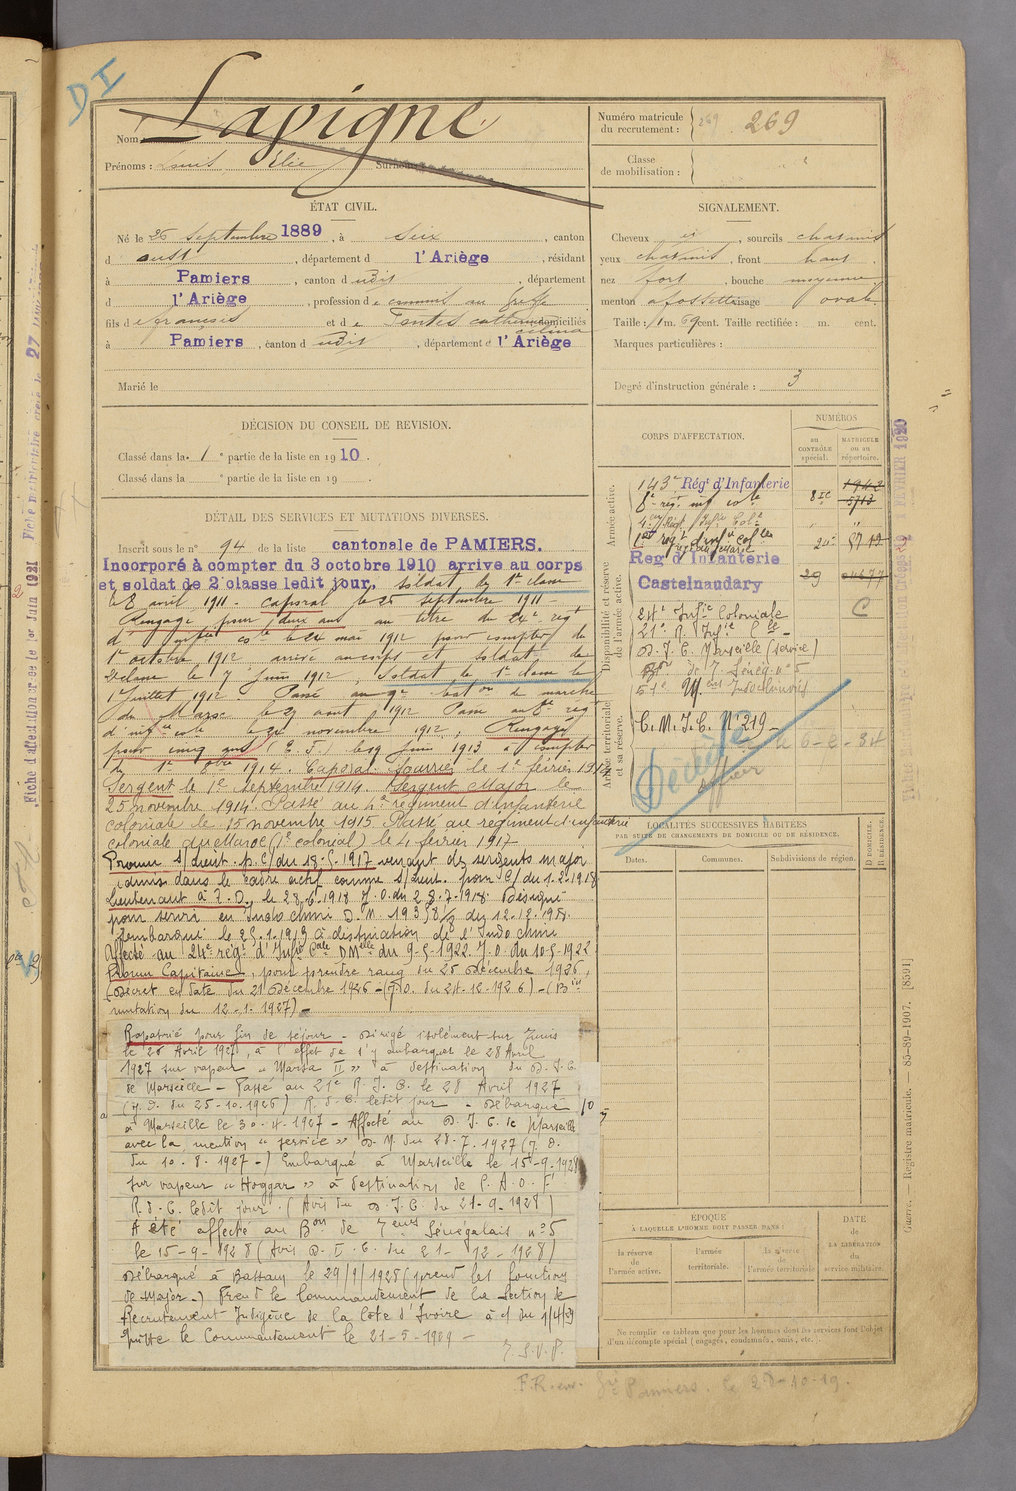 DI
Nom : Lapigne
Prénoms : Louis Elie Surnoms
Numéro matricule du recrutement : 269
Classe de mobilisation :
ÉTAT CIVIL.
Né le 26 Septembre 1889, à Seix, canton
d Oust, département d l'Ariège, résidant
à Pamiers, canton d udit, département
d l'Ariège, profession de commis au greffe
fils de françois et de Tantes domiciliés
à Pamiers, canton d udit, département d l'Ariège
Marié le
SIGNALEMENT.
Cheveux, sourcils chatains
yeux chatains, front haut
nez fort, bouche moyenne
menton à fossette visage ovale
Taille : 1 m. 69 cent. Taille rectifiée : m. cent.
Marques particulières :
Degré d'instruction générale : 3
DÉCISION DU CONSEIL DE REVISION.
Classé dans la 1e partie de la liste en 1910.
Classé dans la e partie de la liste en 19 .
DÉTAIL DES SERVICES ET MUTATIONS DIVERSES.
Inscrit sous le n° 94 de la liste cantonale de PAMIERS.
Incorporé à compter du 3 octobre 1910 arrivé au corps
et soldat de 2e classe ledit jour, soldat de 1re classe
le 8 avril 1911 - caporal le 25 septembre 1911 -
Rengagé pour deux ans au titre du 24e rég
d' infie cole le 24 mai 1912 pour compter du
1er octobre 1912 arrivé au corps et soldat de
2e classe le 7 Juin 1912, Soldat de 1re classe le
1er Juillet 1912. Passé au 9e baton de marche
du Maroc le 29 août 1912 Passé au 8e rég
d'infie cole le 20 novembre 1912, Rengagé
pour cinq ans (E.T.) le 19 Juin 1913 à compter
du 1er 8bre 1914. Caporal fourrier le 1er février 1914
Sergent le 1er Septembre 1914. Sergent Major le
25 novembre 1914. Passé au 4e régiment d'Infanterie
coloniale le 15 novembre 1915 Passé au régiment d'infanterie
coloniale du Maroc (1e colonial) le 4 février 1917
Promu s/lieut. p.c/du 18.5.1917 venant de sergents major
admis dans le cadre actif comme s/lieut. pour c/ du 1.2.1918
Lieutenant à T.D. le 28.6.1918 J.O. du 2.8.7.1918. Désigné
pour servir en Indo chine D.M. 19358/8 du 12.12.1918.
Embarqué le 25.1.1919 à destination de l'Indo Chine
Affecté au 24e régt d'Infie Cole DMelle du 9-5-1922 J.O. du 10-5-1922
Promu Capitaine, pour prendre rang du 25 décembre 1926,
(Décret en date du 21 Décembre 1926 - (J.O. du 24-12-1926) -
mutation du 12-1-1927) -
Rapatrié pour fin de séjour - Dirigé isolément sur Tunis
le 26 Avril 1927, à l'effet de s'y embarquer le 28 Avril
1927 sur vapeur "Marsa II" à destination du D.I.C.
de Marseille - Passé au 21e R.I.C. le 28 Avril 1927
(J.O. du 25-10-1926) R.d.C. ledit jour - Débarqué
à Marseille le 30-4-1927 - Affecté au D.I.C. de Marseille
avec la mention "service" D.M. du 28-7-1927 (J.O.
du 10-8-1927-) Embarqué à Marseille le 15-9-1928
sur vapeur "Hoggar" à destination de l'A.O.F.
R.d.C. ledit jour. (Avis du D.I.C. du 21-9-1928)
A été affecté au Bon de Tirailleurs Sénégalais n°5
le 15-9-1928 (Avis D.I.C. du 21-12-1928)
Débarqué à Bassam le 29/9/1928 (prend les fonctions
de Major -) Prend le Commandement de la Section de
Recrutement Indigène de la Côte d'Ivoire à c/ du 1/4/29
Quitte le Commandement le 21-5-1929 -
T.S.V.P.
CORPS D'AFFECTATION.
NUMÉROS
au CONTRÔLE spécial.
MATRICULE ou au répertoire.
Armée active.
143e Régt d'Infanterie
8e rég. inf cole
4e Régt Infie Cole
Régt d'Infanterie
Castelnaudary
Disponibilité et réserve de l'armée active.
24e Infie Coloniale C
21e R. Infie Cle -
D.I.C. Marseille (service)
Bon de T. Sénég. n°5
Armée territoriale et sa réserve.
C.M.I.C. N°219 -
le 6-2-34
Décédé
officier
LOCALITÉS SUCCESSIVES HABITÉES
PAR SUITE DE CHANGEMENTS DE DOMICILE OU DE RÉSIDENCE.
Dates.
Communes.
Subdivisions de région.
D DOMICILE.
R RÉSIDENCE.
ÉPOQUE
À LAQUELLE L'HOMME DOIT PASSER DANS :
la réserve de l'armée active.
l'armée territoriale.
la réserve de l'armée territoriale
DATE de LA LIBÉRATION du service militaire.
Ne remplir ce tableau que pour les hommes dont les services font l'objet
d'un décompte spécial (engagés, condamnés, omis, etc.).
Guerre. — Registre matricule. — 85-89-1907. [8591]
Pamiers. le 28-10-19.